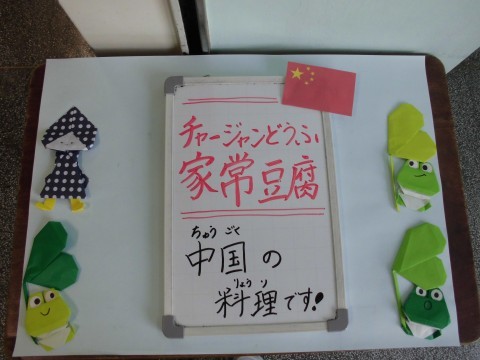 チャージャンどうふ
家常豆腐
ちゅうごく
中国の
りょうり
料理です!